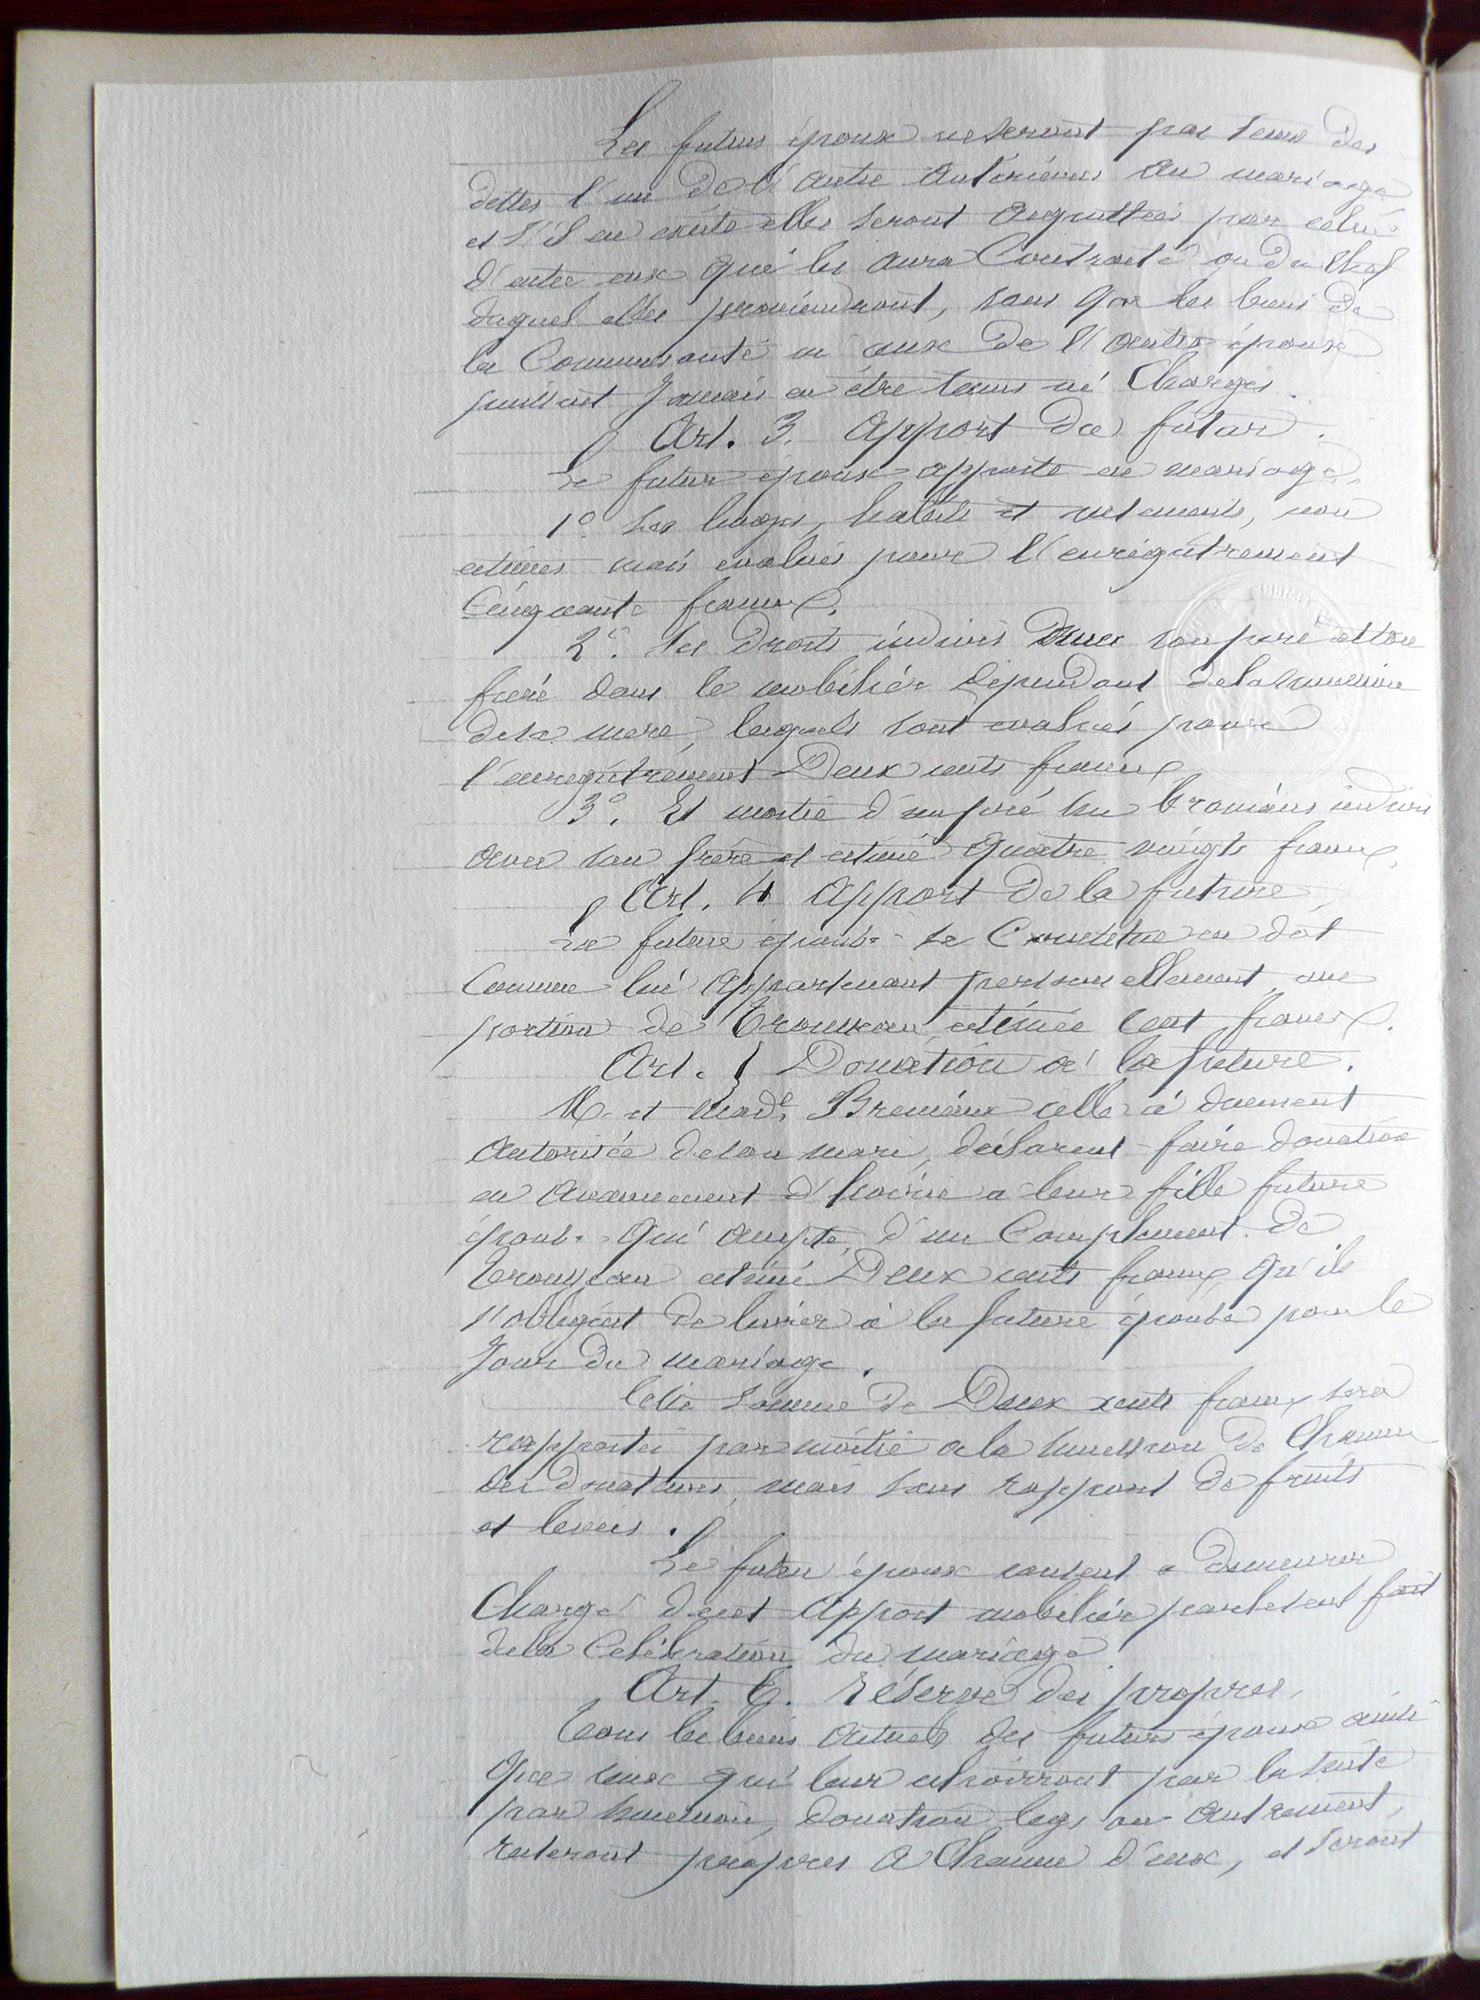 Les futurs époux ne seront pas tenus des
dettes l'un de l'autre antérieures au mariage
et s'il en existe elles seront acquittées par celui
d'entre eux qui les aura contractées ou du chef
duquel elles proviendront, sans que les biens de
la Communauté ni ceux de l'autre époux
puissent jamais en être tenus ni chargés.
Art. 3. Apport du futur.
Le futur époux apporte en mariage,
1° Ses linges, habits et vêtements, non
estimés mais évalués pour l'enregistrement
Cinquante francs.
2°. Ses droits indivis avec son père et son
frère dans le mobilier dépendant de la succession
de sa mère, lesquels sont évalués pour
l'enregistrement Deux cents francs
3°. Et moitié d'un indivis
avec son frère et estimé quatre vingts francs.
Art. 4 Apport de la future.
La future épouse se constitue en dot
Comme lui appartenant personnellement une
portion de Trousseau estimée Cent francs.
Art. 5 Donation à la future.
M. et Made celle ci duement
autorisée de son mari, déclarent faire donation
en avancement d'hoirie a leur fille future
épouse qui accepte, d'un Complément de
Trousseau estimé Deux cents francs, qu'ils
s'obligent de livrer à la future épouse pour le
Jour du mariage.
Cette somme de Deux cents francs sera
rapportée par moitié à la succession de Chacun
des donateurs, mais sans rapport de fruits
et levées.
Le futur époux consent a demeurer
Chargé de cet apport mobilier par le seul fait
de la Célébration du mariage
Art. 6. Réserve des propres.
Tous les biens actuels des futurs époux ainsi
que ceux qui leur echoirront par la suite
par succession, donation legs ou autrement,
resteront propres a Chacun d'eux, et seront